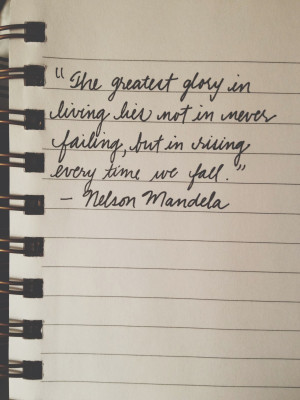 "The greatest glory in
living lies not in never
failing, but in rising
every time we fall."
- Nelson Mandela